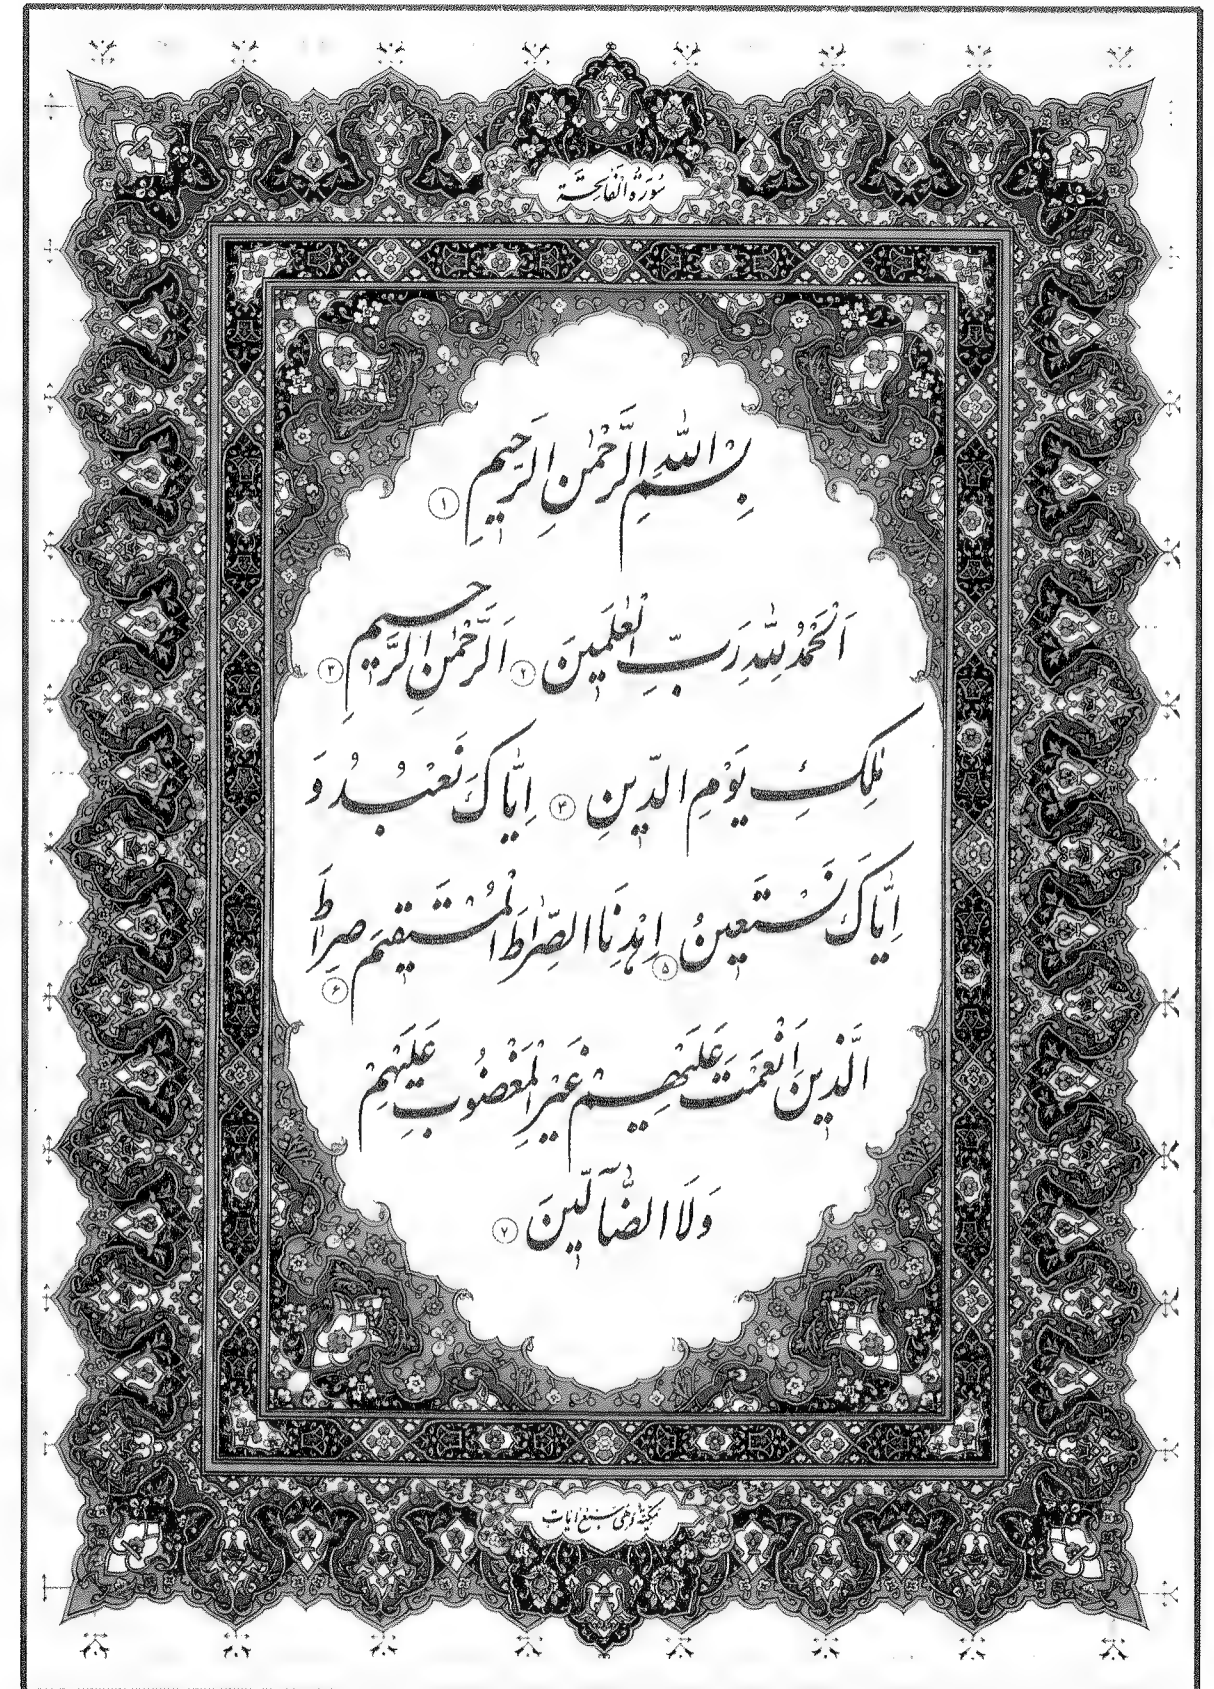 سُورَةُ الْفَاتِحَة
بِسْمِ اللّٰهِ الرَّحْمٰنِ الرَّحِيمِ ۱
اَلْحَمْدُ لِلّٰهِ رَبِّ الْعٰلَمِينَ ۲ اَلرَّحْمٰنِ الرَّحِيمِ ۳
مٰلِكِ يَوْمِ الدِّينِ ۴ اِيَّاكَ نَعْبُدُ وَ
اِيَّاكَ نَسْتَعِينُ ۵ اِهْدِنَا الصِّرٰاطَ الْمُسْتَقِيمَ ۶ صِرٰاطَ
الَّذِينَ اَنْعَمْتَ عَلَيْهِمْ غَيْرِ الْمَغْضُوبِ عَلَيْهِمْ
وَلَا الضَّٓالِّينَ ۷
مَكِّيَّة وَهِيَ سَبْعُ اٰيَات